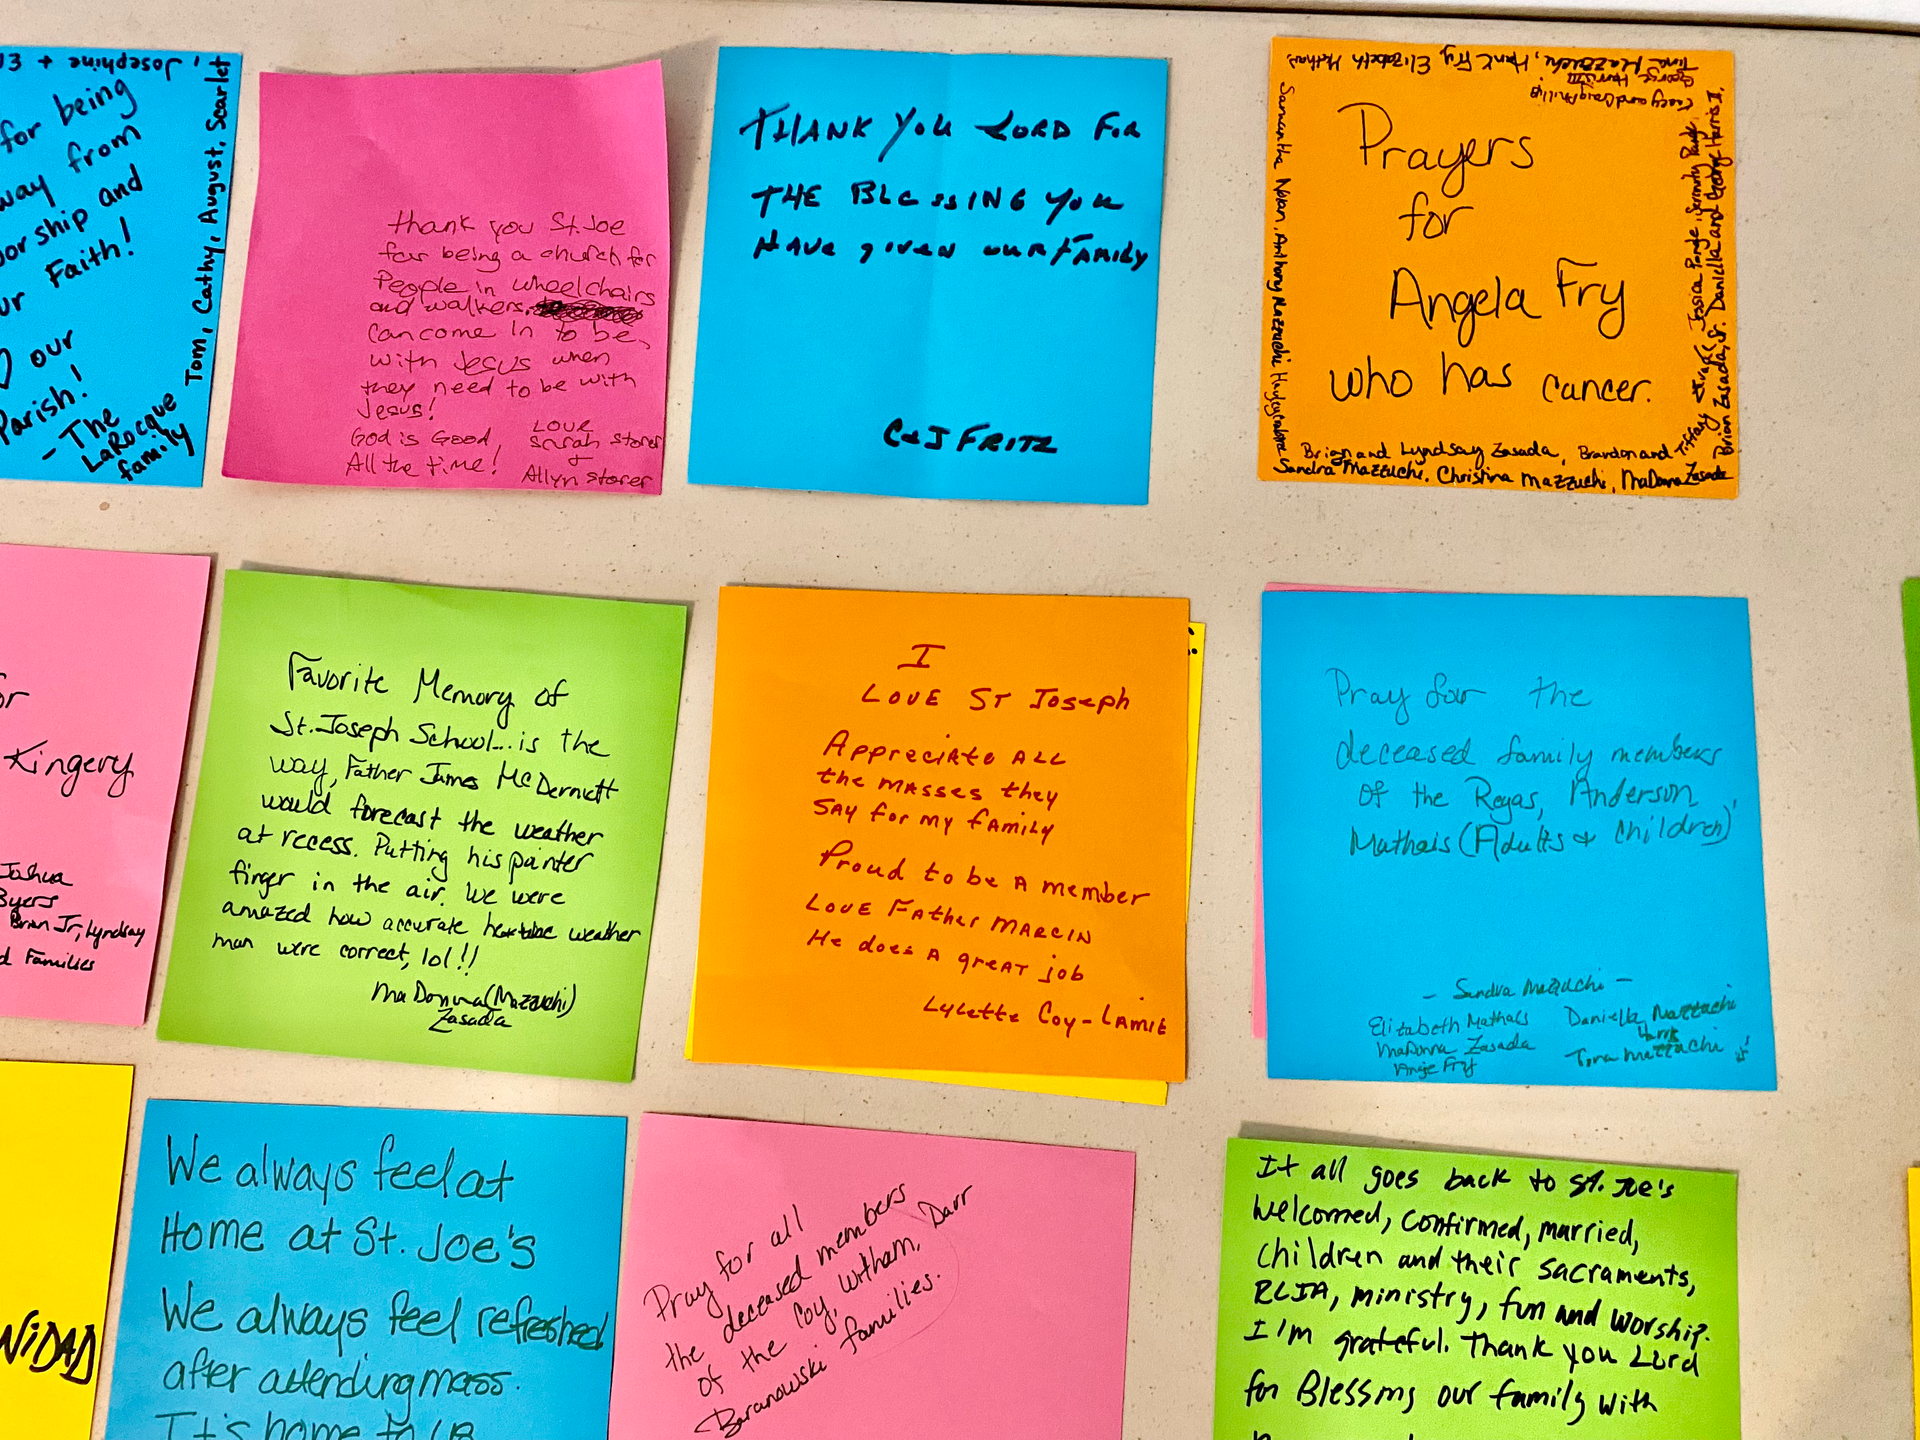 Josephine +
for being
way from
worship and
ur Faith!
our
Parish!
- The
LaRocque
family
Tom, Cathy, August, Scarlet
thank you St. Joe
for being a church for
People in wheelchairs
and walkers.
can come in to be,
with Jesus when
they need to be with
Jesus!
God is Good,
All the time!
LOVE
Sarah Storer
+
Allyn Storer
THANK YOU LORD FOR
THE BLESSING YOU
HAVE given OUR FAMILY
C+J FRITZ
Prayers
for
Angela Fry
who has cancer.
Tina Mazzuchi, Hank Fry, Elizabeth Mathais
George Harris III
Casey and Craig Phillip
Samantha Nolan, Anthony Mazzuchi
Jessica Parge, Serenity
Brian Zasada, Jr. Daniella and George Harris II,
Brian and Lyndsay Zasada, Brandon and Tiffany
Sandra Mazzuchi, Christina Mazzuchi, MaDonna Zasada
or
Kingery
Joshua
Byers
Brian Jr, Lyndsay
d Families
Favorite Memory of
St. Joseph School... is the
way, Father James McDermott
would forecast the weather
at recess. Putting his pointer
finger in the air. We were
amazed how accurate weather
man were correct, lol!!
MaDonna (Mazzuchi)
Zasada
I
LOVE ST Joseph
Appreciate ALL
the MASSES they
SAY for my fAMILY
Proud to be A member
LOVE FAther MARCIN
He does A greAT job
Lylette Coy-LAMIE
Pray for the
deceased family members
of the Regas, Anderson,
Mathais (Adults + children)
- Sandra Mazzuchi -
Elizabeth Mathais
MaDonna Zasada
Angie Fry
Daniella Mazzuchi
Harris
Tina Mazzuchi
NIDAD
We always feel at
Home at St. Joe's
We always feel refreshed
after attending mass.
It's home to us
Pray for all
the deceased members
of the Coy, Witham, Darr
Baranowski families.
It all goes back to St. Joe's
Welcomed, confirmed, married,
children and their sacraments,
RCIA, ministry, fun and worship.
I'm grateful. Thank you Lord
for Blessing our family with